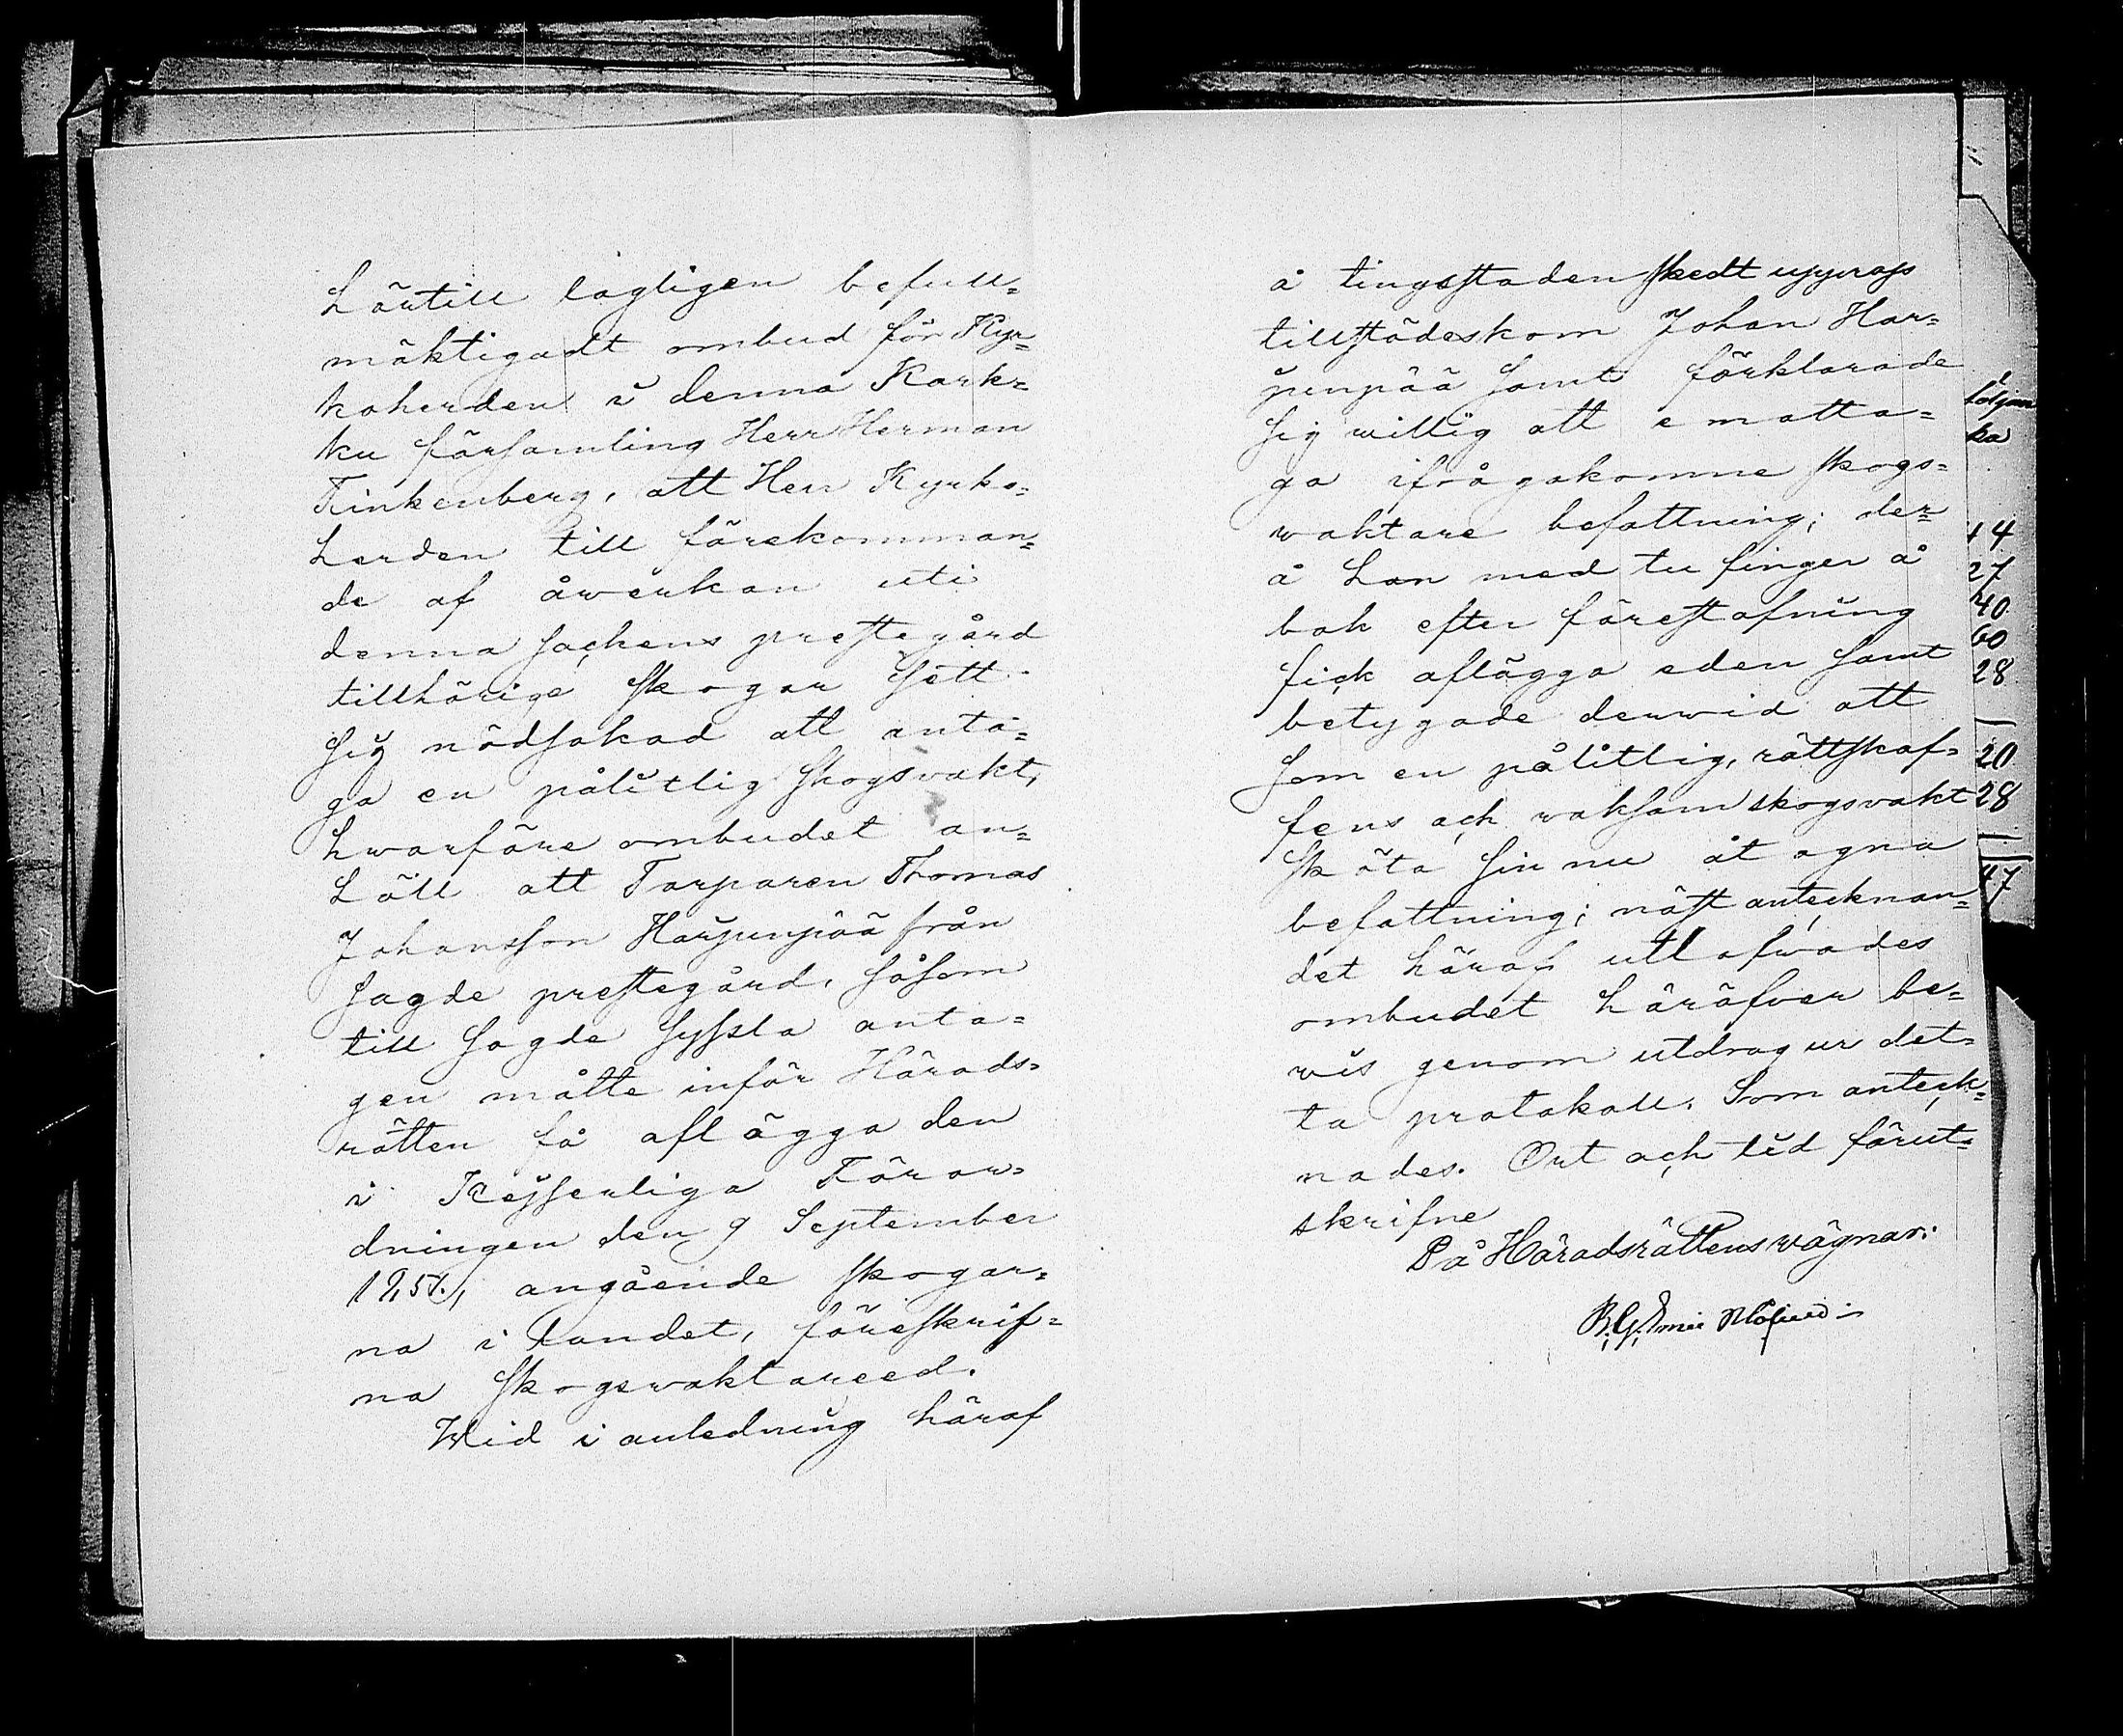 härtill lagligen befull=
mäktigadt ombud för Kyr=
koherden i denna Kark=
ku församling Herr Herman
Finkenberg, att Herr Kyrko=
herden till förekomman=
de af åwerkan uti
denna sockens prestegård
tillhörige skogar sett
sig nödsakad att anta=
ga en pålitlig skogsvakt,
hwarföre ombudet an=
höll att Torparen Thomas
Johansson Harjunpää från
sagde prestegård, såsom
till sagde syssla anta=
gen måtte inför Härads=
rätten få aflägga den
i Kejserliga Föror=
dningen den 9 September
1851, angående skogar=
na i landet, föreskrif=
na skogswaktareed.
Wid i anledning häraf
å tingsstaden skedt upprop
tillstädeskom Johan Har=
junpää samt förklarade
sig willig att emotta=
ga ifrågakomne skogs=
waktare befattning; der=
å han med tu finger å
bok efter förestafning
fick aflägga eden samt
betygade derwid att
som en pålitlig, rättskaf=
fens och waksam skogsvakt
sköta sin nu åtagna
befattning; näst antecknan=
det häraf utlofwades
ombudet häröfver be=
wis genom utdrag ur det=
ta protokoll. Som anteck=
nades. Ort och tid förut=
skrifne
På Häradsrättens wägnar:
ka
44
27
40
60
28
20
28
47